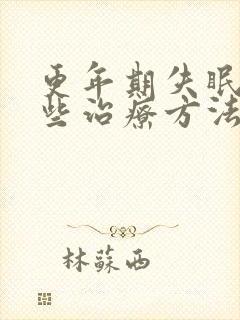 更年期失眠
些治療方法
林蘇西